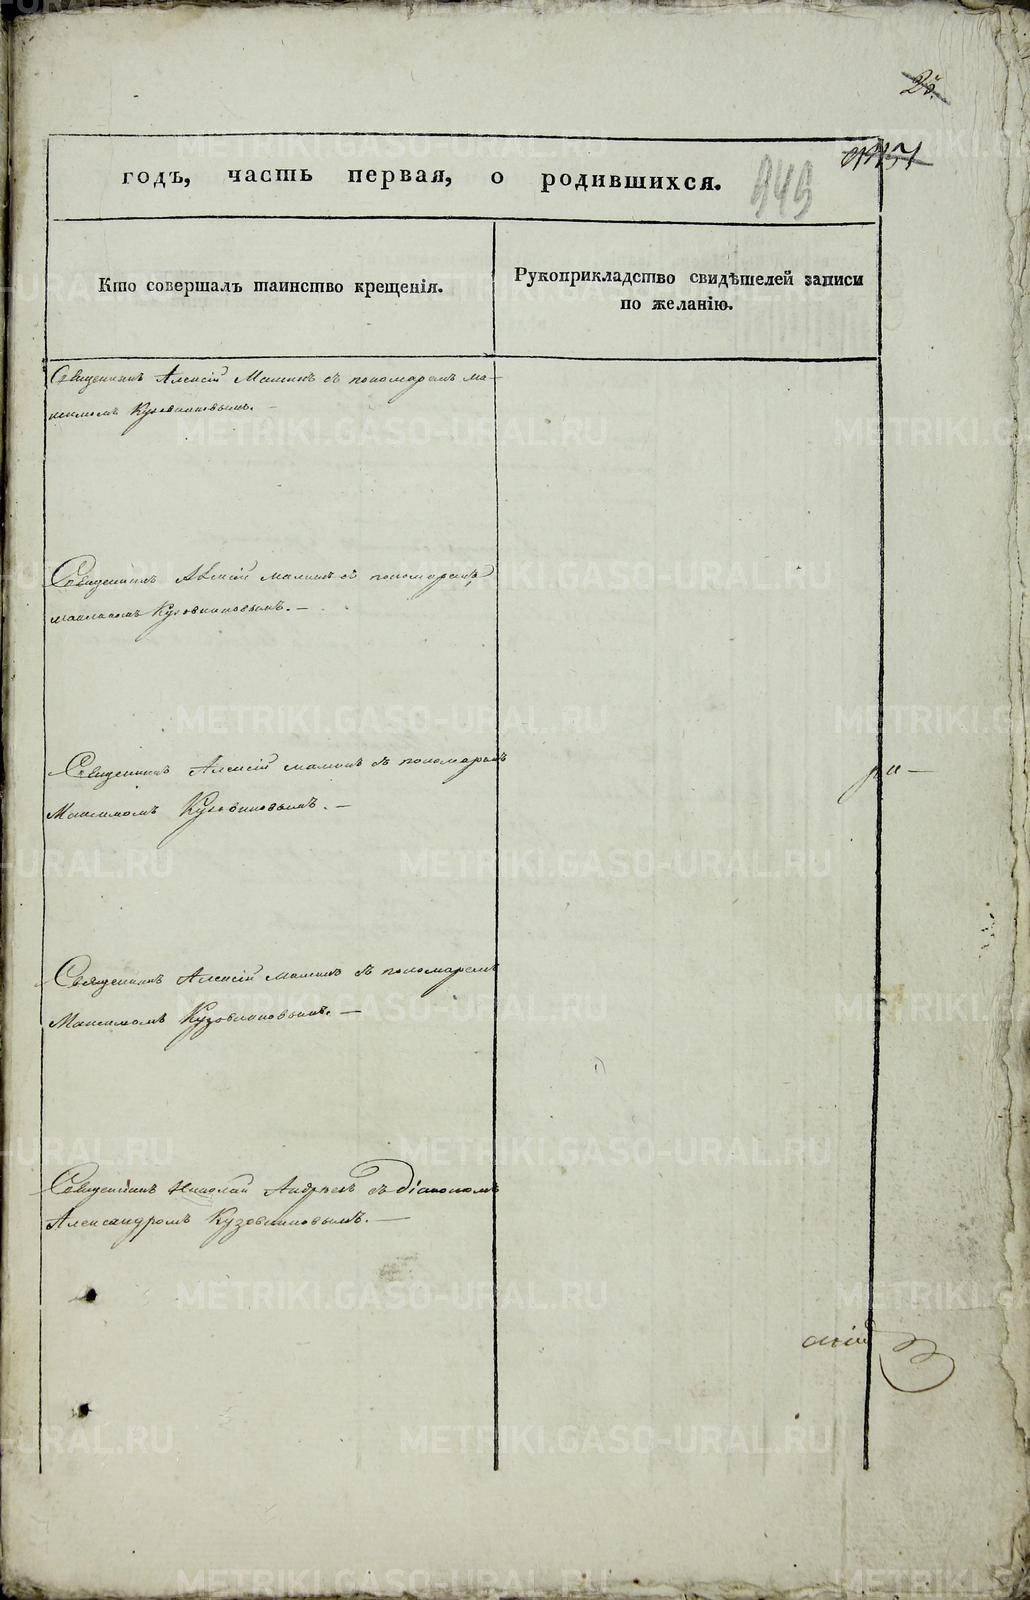 28.
949
годъ, часть первая, о родившихся.
Кто совершалъ таинство крещенія.
Рукоприкладство свидѣтелей записи
по желанію.
Священникъ Алексій Маминъ съ пономаремъ Ма-
ксимомъ Кузовниковымъ. —
Священникъ Алексій Маминъ съ пономаремъ
Максимомъ Кузовниковымъ. —
Священникъ Алексій Маминъ съ пономаремъ
Максимомъ Кузовниковымъ. —
ри —
Священникъ Алексій Маминъ съ пономаремъ
Максимомъ Кузовниковымъ. —
Священникъ Николай Андреевъ съ діакономъ
Александромъ Кузовниковымъ. —
METRIKI.GASO-URAL.RU